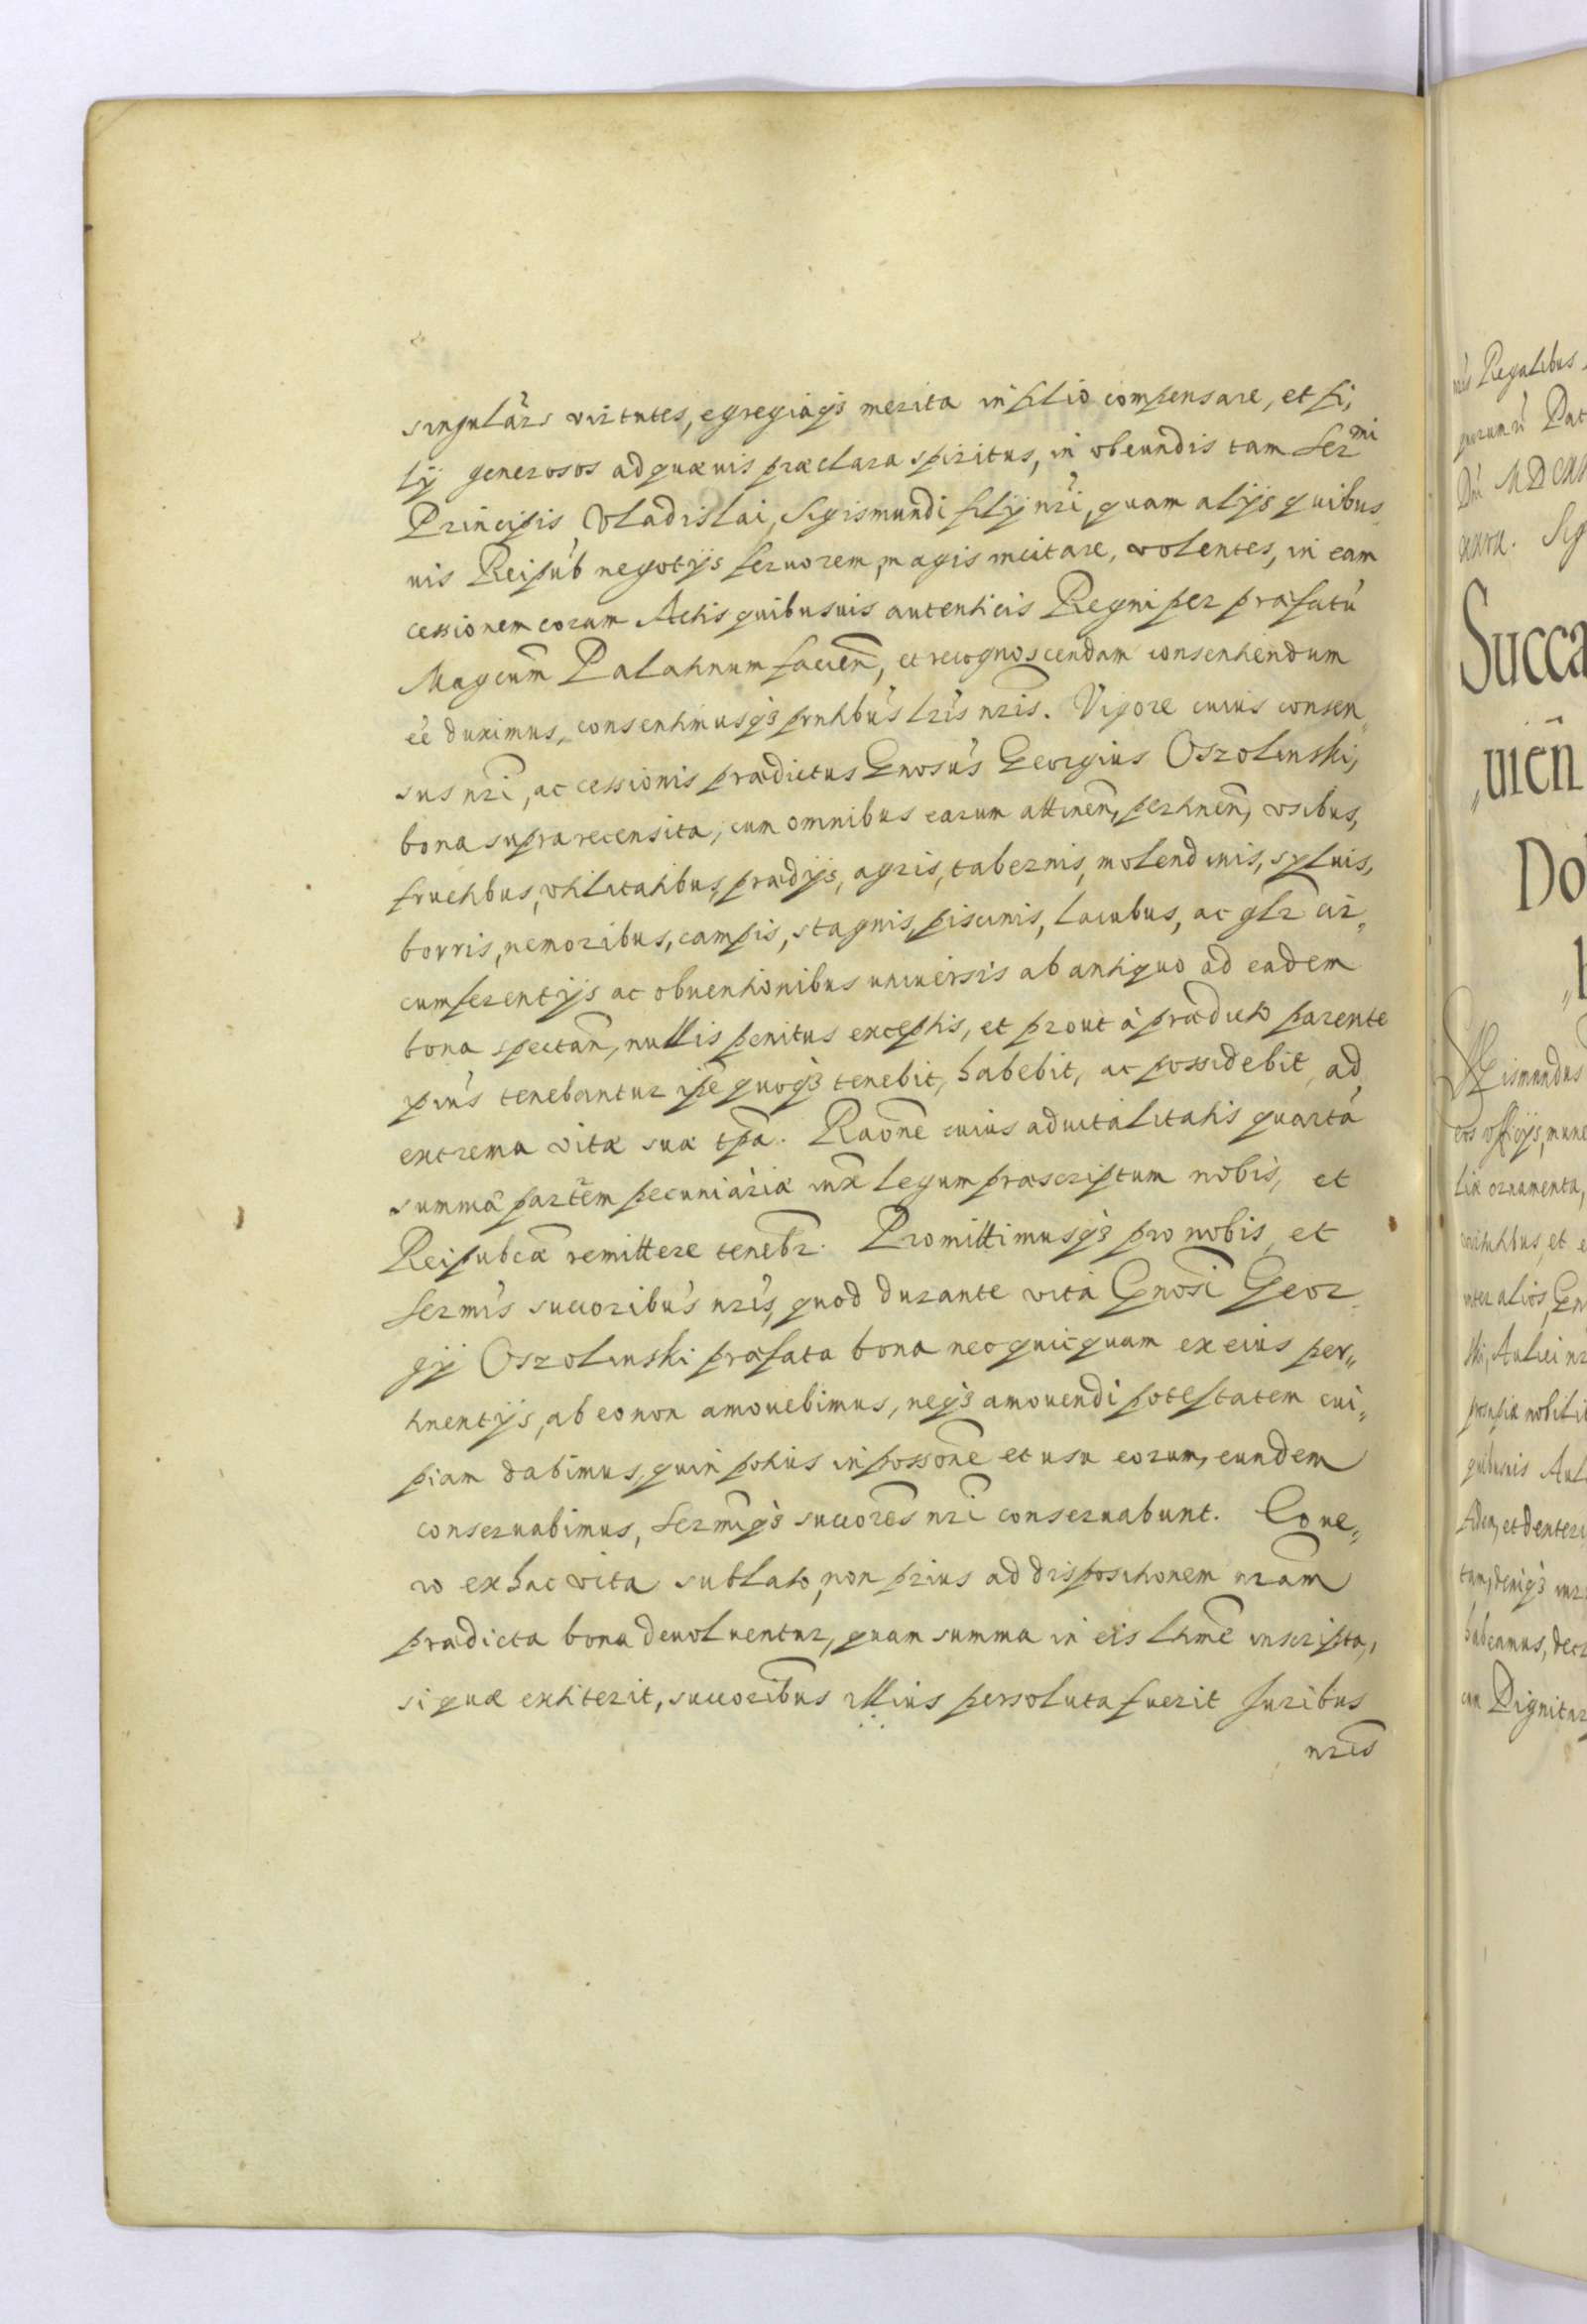 singulārs virtutes, egregiasq3 merita in filio compensare, et fi,,
lij generosos ad quævis præclara spiritus, in obeundis tam Ser^mi
Principis Vladislai, Sigismundi filij nri, quam alijs quibus,,
uis Reipub negotijs feruorem, magis incitare, volentes, in eam
cessionem eorum Actis quibusuis autenticis Regni per præfatū
Magcum Palatinum facien, et recognoscendam consentiendum
eē duximus, consentimusq3 pntibus lris nris. Vigore cuius consen,,
sus nri, ac cessionis prædictus Gnosus Georgius Oszolinski,
bona suprarecensita, cum omnibus earum attinen, pertinen, vsibus,
fructibus, vtilitatibus, prædijs, agris, tabernis, molendinis, syluis,
borris, nemoribus, campis, stagnis, piscinis, lacubus, ac glr cir,,
cumferentijs ac obuentionibus vniuersis ab antiquo ad eadem
bona spectan, nullis penitus exceptis, et prout à prædicto parente
pius tenebantur ipe quoq3 tenebit, habebit, ac possidebit, ad
extrema vitæ suæ tpa. Raone cuius aduitalitatis quartā
summā partem pecuniariæ iux legum præscriptum nobis, et
Reipubcæ remittere tenebr. Promittimusq3 pro nobis, et
Sermis succoribus nris, quod durante vita Gnosi Geor,,
gij Oszolinski præfata bona nec quicquam ex eius per,,
tinentijs, ab eo non amouebimus, neq3 amouendi potestatem cui,,
piam dabimus, quin potius in possone et usu eorum, eundem
conseruabimus, Sermiq3 succores nri conseruabunt. Eo ue,,
ro ex hac vita sublato, non prius ad dispositionem nram
prædicta bona deuoluentur, quam summa in eis ltme inscripta,
si quæ extiterit, succoribus illius persoluta fuerit Juribus
nris
Regalibus
Succa
,,uien
Do
alios, Gn
Aulici nr
nobilit
Aul
habeamus, decr
Dignitar